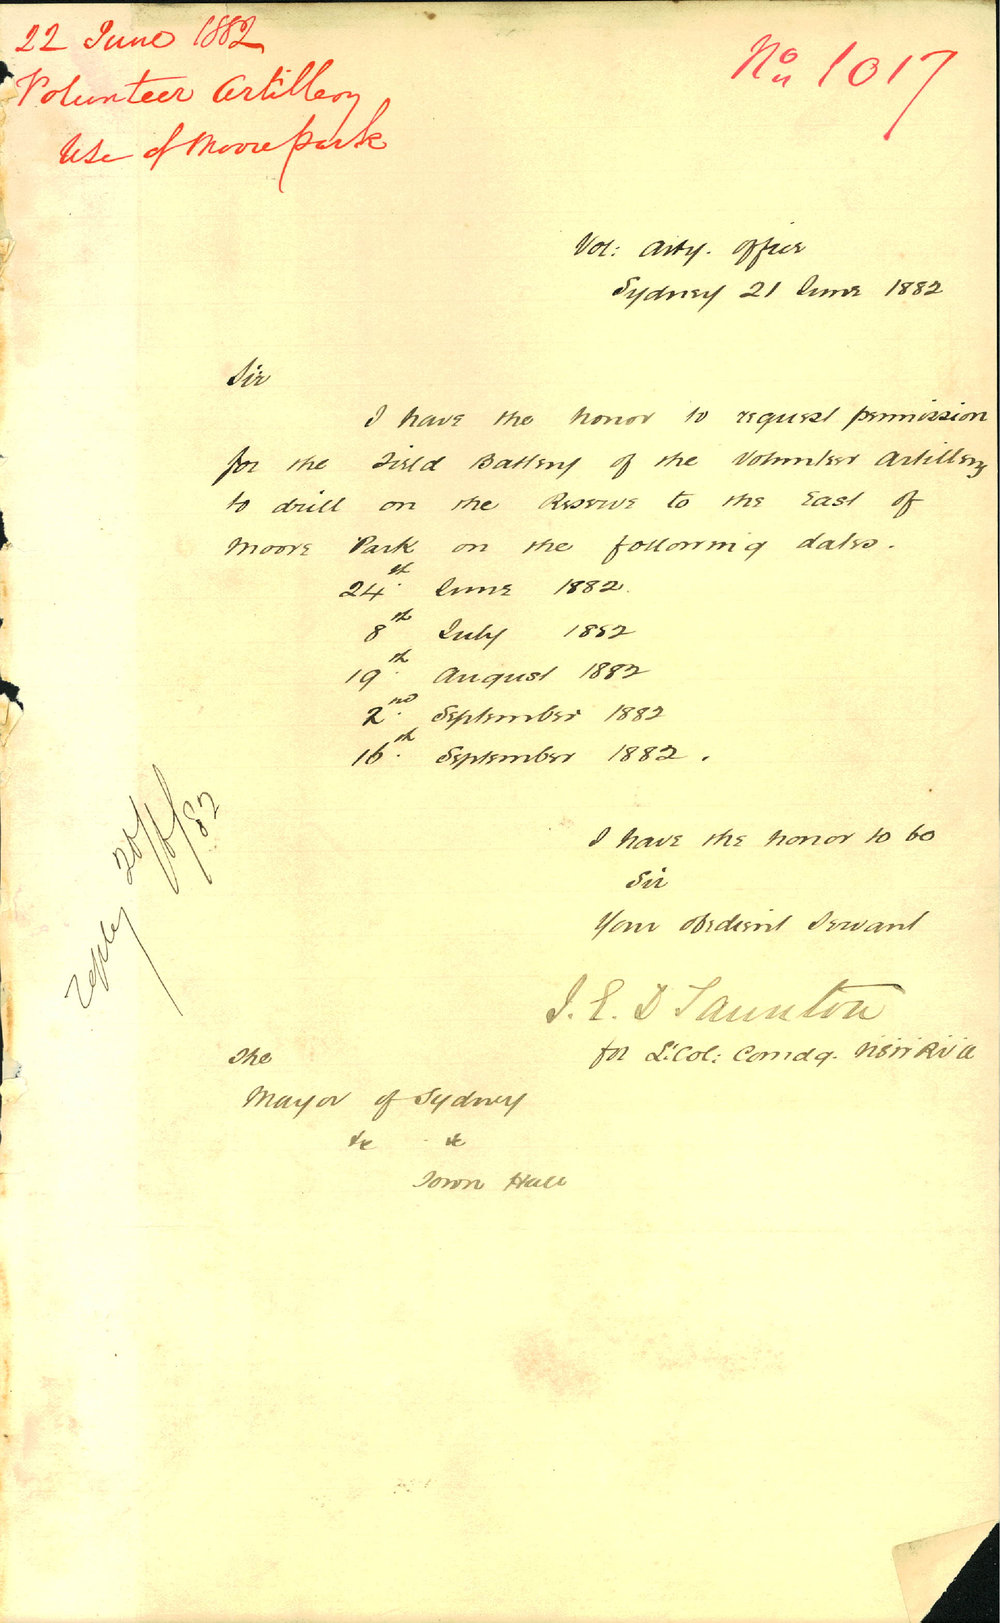 22 June 1882
Volunteer Artillery
Use of Moore Park
No 1017
Vol: Arty. Office
Sydney 21 June 1882
Sir
I have the honor to request permission
for the Field Battery of the Volunteer Artillery
to drill on the Reserve to the East of
Moore Park on the following dates.
24th June 1882.
8th July 1882
19th August 1882
2nd September 1882
16th September 1882.
I have the honor to be
Sir
Your obedient Servant
J. E. D Taunton
for Lt. Col: Comdg.
The
Mayor of Sydney
&c &c
Town Hall
reply